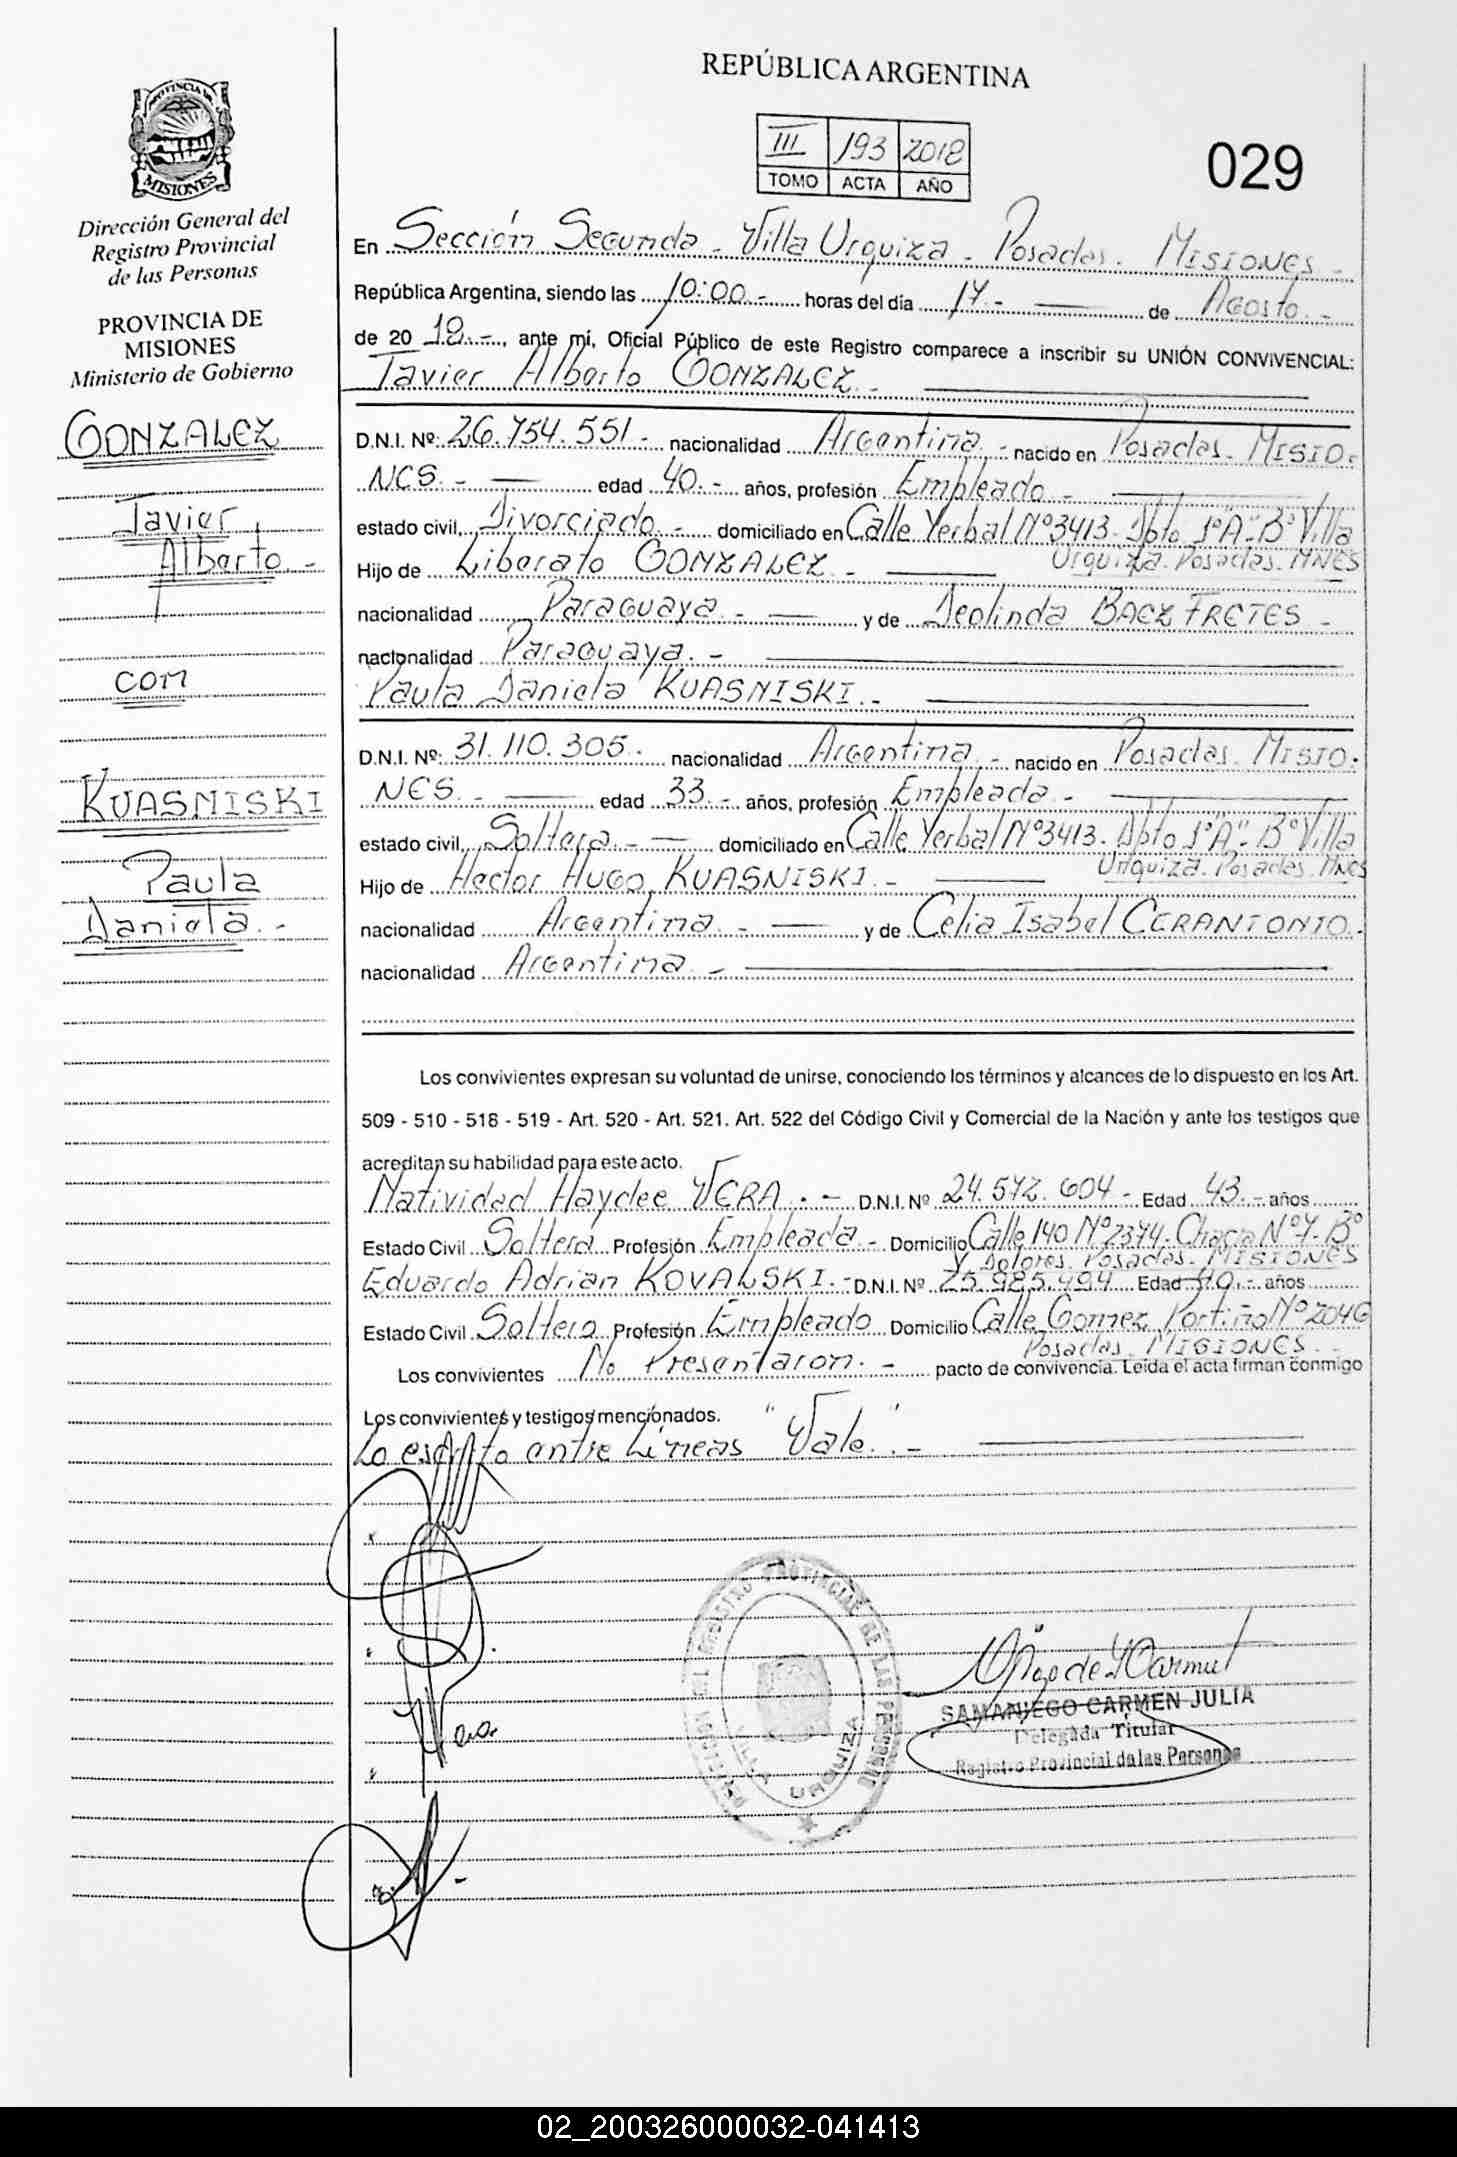 REPÚBLICA ARGENTINA
III 193 2018
TOMO ACTA AÑO
029
PROVINCIA DE
MISIONES
Dirección General del
Registro Provincial
de las Personas
PROVINCIA DE
MISIONES
Ministerio de Gobierno
GONZALEZ
Javier
Alberto.-
con
KUASNISKI
Paula
Daniela.-
En Sección Segunda - Villa Urquiza - Posadas - MISIONES -
República Argentina, siendo las 10:00.- horas del día 17.- de Agosto.-
de 20 18.-, ante mí, Oficial Público de este Registro comparece a inscribir su UNIÓN CONVIVENCIAL:
Javier Alberto GONZALEZ.-
D.N.I. Nº: 26.754.551.- nacionalidad Argentina.- nacido en Posadas - MISIO-
NES.- edad 40.- años, profesión Empleado.-
estado civil, Divorciado.- domiciliado en Calle Yerbal Nº3413- Dpto 1º"A"- Bº Villa
Urquiza. Posadas. MNES
Hijo de Liberato GONZALEZ.-
nacionalidad Paraguaya.- y de Deolinda BAEZ FRETES -
nacionalidad Paraguaya.-
Paula Daniela KUASNISKI.-
D.N.I. Nº: 31.110.305. nacionalidad Argentina.- nacido en Posadas - MISIO-
NES.- edad 33.- años, profesión Empleada.-
estado civil, Soltera.- domiciliado en Calle Yerbal Nº3413- Dpto 1º"A"- Bº Villa
Urquiza. Posadas. MNES
Hijo de Hector Hugo KUASNISKI.-
nacionalidad Argentina.- y de Celia Isabel CERANTONIO.-
nacionalidad Argentina.-
Los convivientes expresan su voluntad de unirse, conociendo los términos y alcances de lo dispuesto en los Art.
509 - 510 - 518 - 519 - Art. 520 - Art. 521. Art. 522 del Código Civil y Comercial de la Nación y ante los testigos que
acreditan su habilidad para este acto.
Natividad Haydee VERA.- D.N.I. Nº 24.572.604.- Edad 43.- años
Estado Civil Soltera Profesión Empleada.- Domicilio Calle 140 Nº2374- Chacra Nº7- Bº
Y Dolores. Posadas. MISIONES
Eduardo Adrian KOVALSKI.- D.N.I. Nº 25.985.494 Edad 40.- años
Estado Civil Soltero Profesión Empleado Domicilio Calle Gomez Portiño Nº2046
Posadas. MISIONES.-
Los convivientes No Presentaron.- pacto de convivencia. Leída el acta firman conmigo
Los convivientes y testigos mencionados.
Lo escrito entre Lineas "Vale".-
REGISTRO PROVINCIAL DE LAS PERSONAS
VILLA URQUIZA
SAMANIEGO CARMEN JULIA
Delegada Titular
Registro Provincial de las Personas
02_200326000032-041413